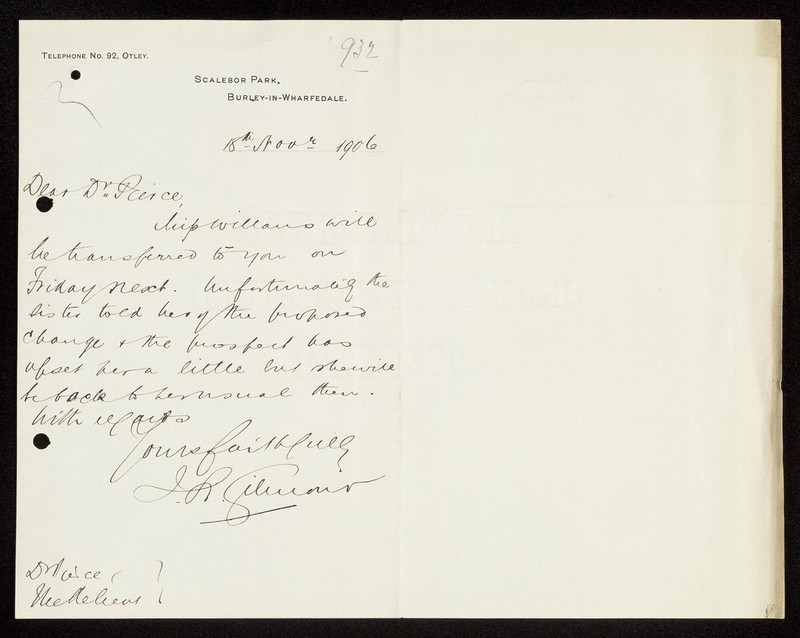 932
TELEPHONE No. 92, OTLEY.
SCALEBOR PARK,
BURLEY-IN-WHARFEDALE.
18th Novr 1906
Dear Dr. Pierce,
Miss Willans will
be transferred to you on
Friday next. Unfortunately the
sister told her of the proposed
change & the prospect has
upset her a little but she will
be back to her usual then.
With regards
Yours faithfully
J. R. Gilmour
Dr Pierce
The Retreat